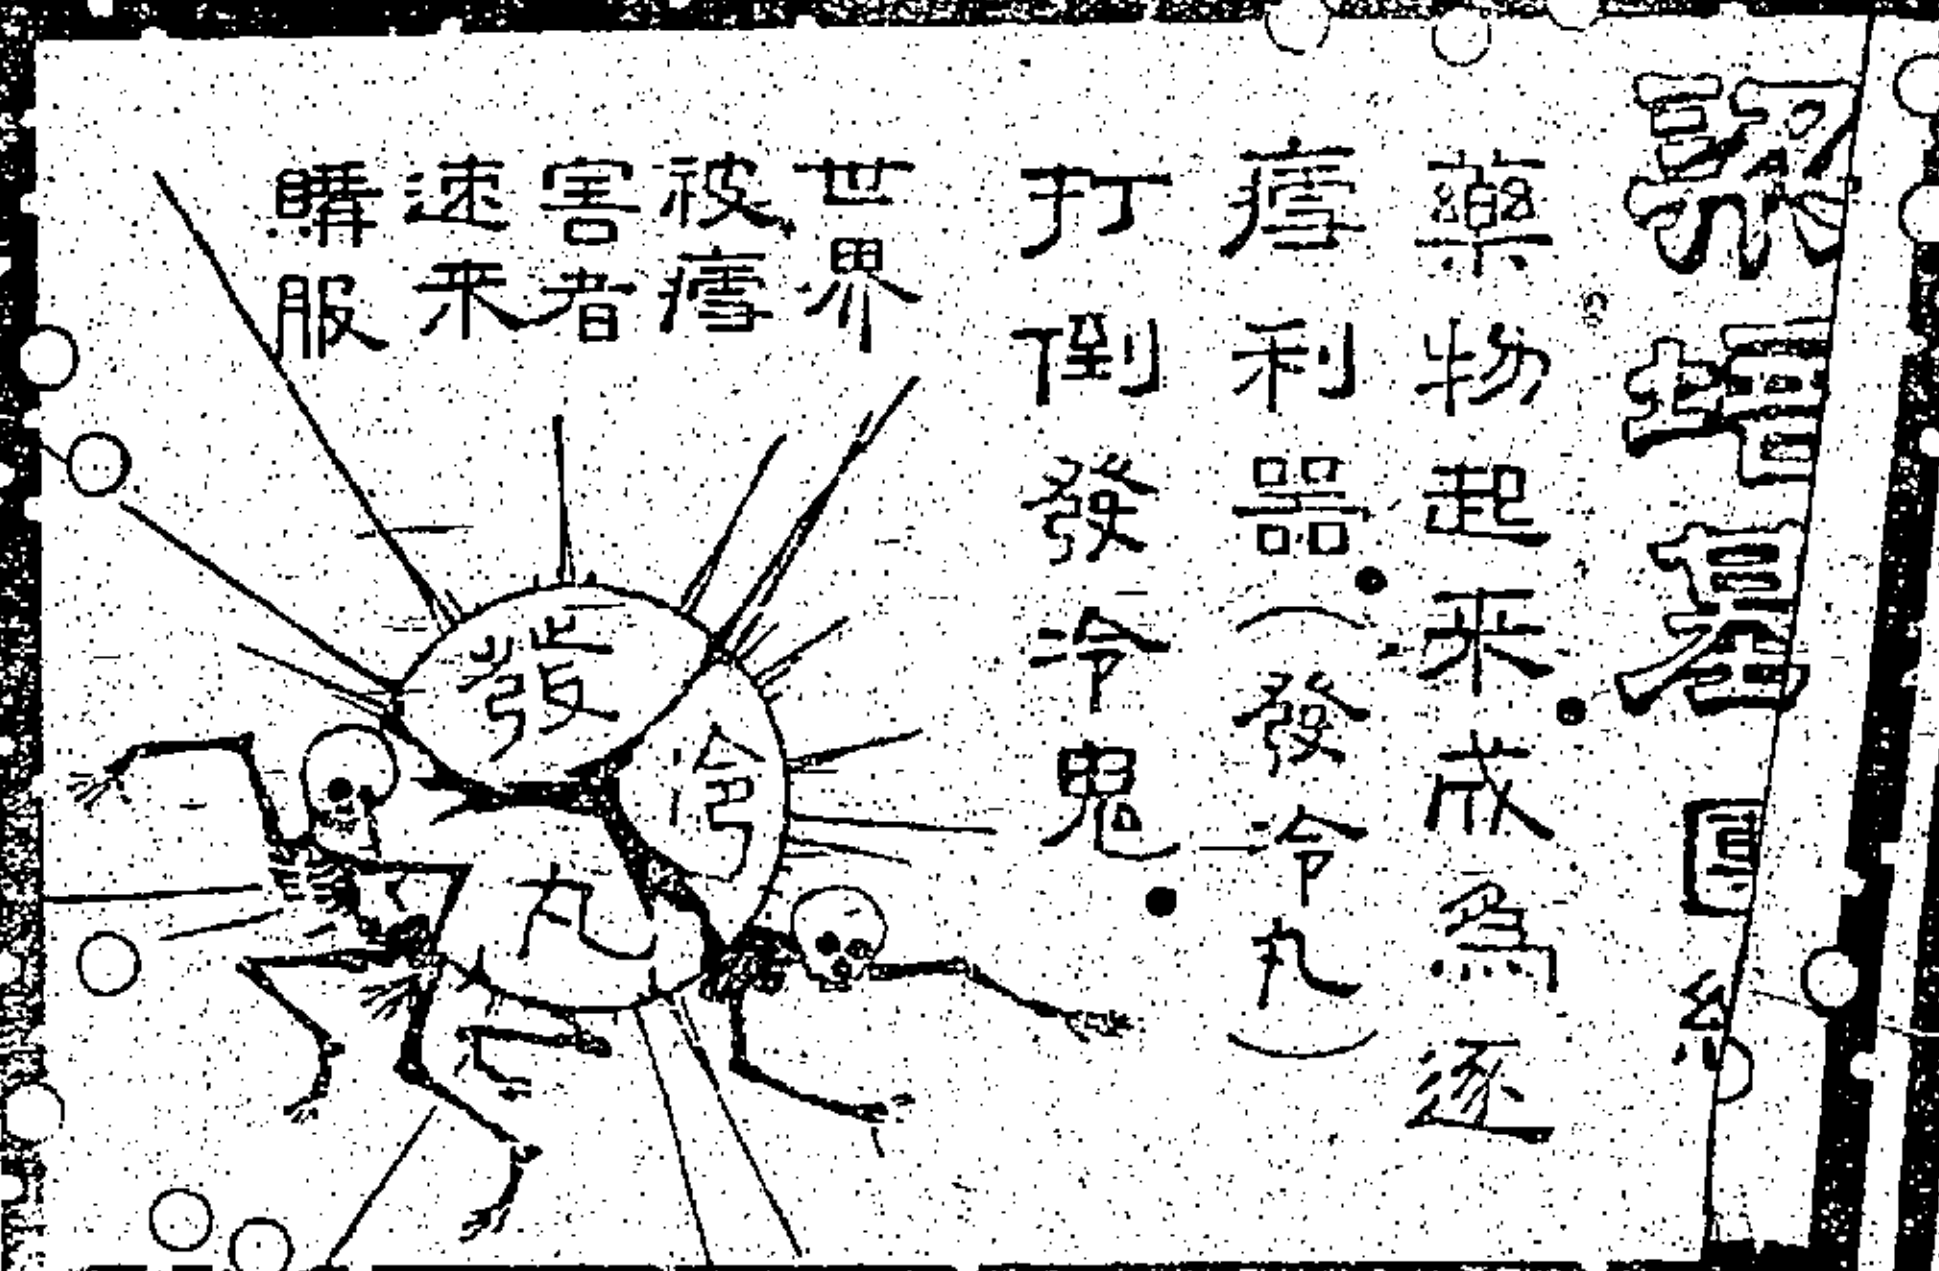 梁培基
藥物起来成為逐
瘧利器（發冷丸）
打倒發冷鬼
世界
被瘧
害者
速来
購服
發
冷
丸